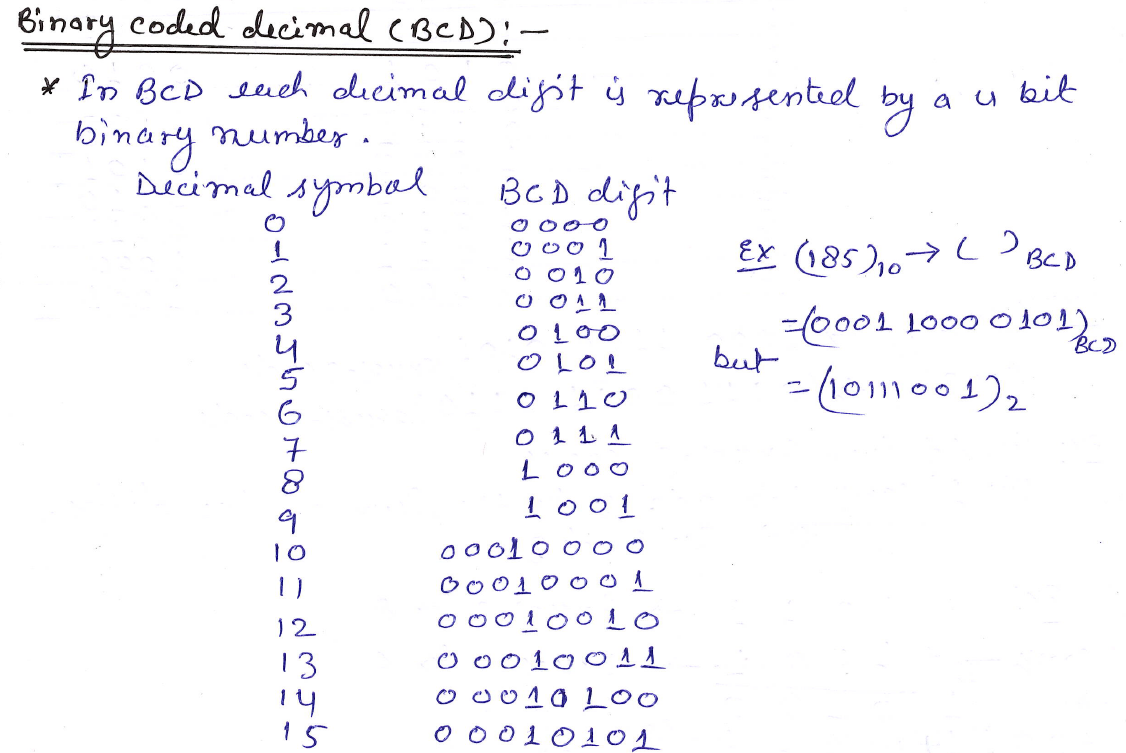 Binary coded decimal (BCD):-
* In BCD each decimal digit is represented by a 4 bit
binary number.
Decimal symbol BCD digit
0 0000
1 0001
2 0010
3 0011
4 0100
5 0101
6 0110
7 0111
8 1000
9 1001
10 00010000
11 00010001
12 00010010
13 00010011
14 00010100
15 00010101
Ex (185)10 → ( )BCD
=(0001 1000 0101)BCD
but
=(10111001)2